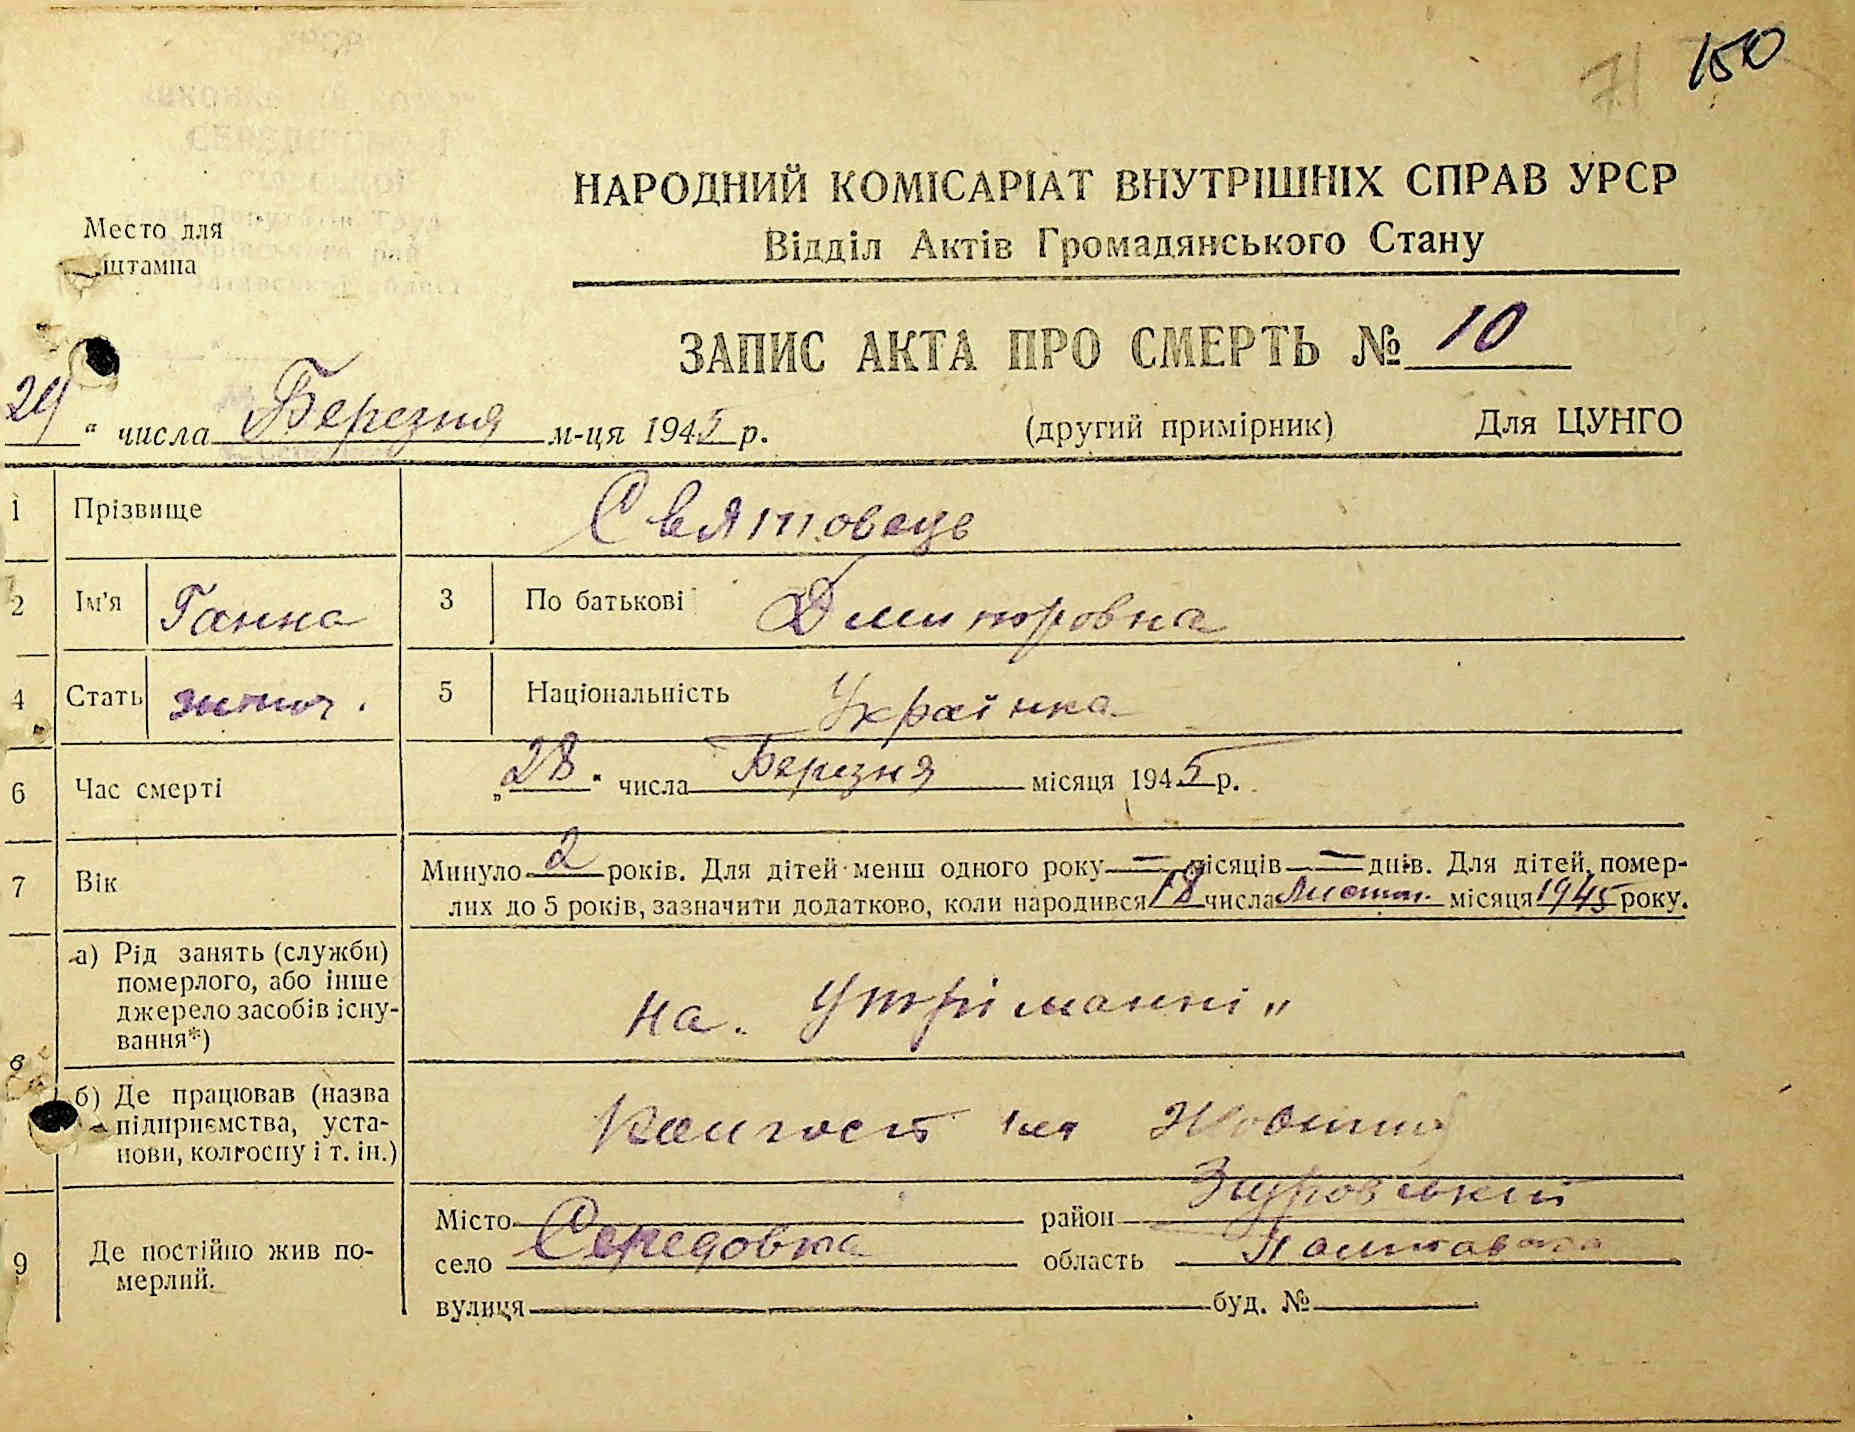 71 150
НАРОДНИЙ КОМІСАРІАТ ВНУТРІШНІХ СПРАВ УРСР
Відділ Актів Громадянського Стану
Место для
штампа
ЗАПИС АКТА ПРО СМЕРТЬ № 10
29 " числа Березня м-ця 1945 р. (другий примірник) Для ЦУНГО
1 Прізвище Святовець
2 Ім'я Ганна 3 По батькові Дмитровна
4 Стать жиноч. 5 Національність Українка
6 Час смерті „28" числа Березня місяця 1945 р.
7 Вік Минуло 2 років. Для дітей менш одного року — місяців — днів. Для дітей, помер-
лих до 5 років, зазначити додатково, коли народився 18 числа Листоп. місяця 1945 року.
8 а) Рід занять (служби)
померлого, або інше
джерело засобів існу-
вання*) на. Утріманні"
б) Де працював (назва
підприємства, уста-
нови, колгоспу і т. ін.) Колгосп ім Жовтня
9 Де постійно жив по-
мерлий. Місто район Згуровський
село Середовка область Полтавська
вулиця буд. №